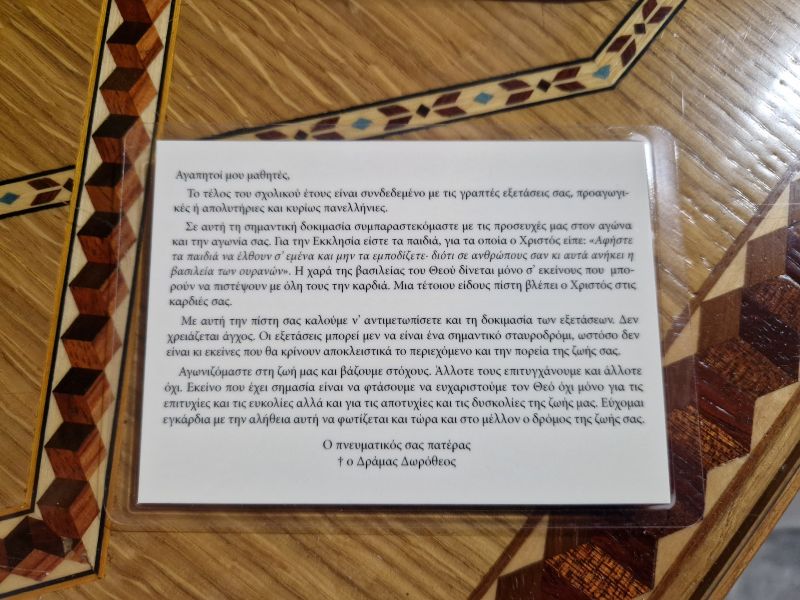 Αγαπητοί μου μαθητές,
Το τέλος του σχολικού έτους είναι συνδεδεμένο με τις γραπτές εξετάσεις σας, προαγωγι-
κές ή απολυτήριες και κυρίως πανελλήνιες.
Σε αυτή τη σημαντική δοκιμασία συμπαραστεκόμαστε με τις προσευχές μας στον αγώνα
και την αγωνία σας. Για την Εκκλησία είστε τα παιδιά, για τα οποία ο Χριστός είπε: «Αφήστε
τα παιδιά να έλθουν σ' εμένα και μην τα εμποδίζετε· διότι σε ανθρώπους σαν κι αυτά ανήκει η
βασιλεία των ουρανών». Η χαρά της βασιλείας του Θεού δίνεται μόνο σ' εκείνους που μπο-
ρούν να πιστέψουν με όλη τους την καρδιά. Μια τέτοιου είδους πίστη βλέπει ο Χριστός στις
καρδιές σας.
Με αυτή την πίστη σας καλούμε ν' αντιμετωπίσετε και τη δοκιμασία των εξετάσεων. Δεν
χρειάζεται άγχος. Οι εξετάσεις μπορεί μεν να είναι ένα σημαντικό σταυροδρόμι, ωστόσο δεν
είναι κι εκείνες που θα κρίνουν αποκλειστικά το περιεχόμενο και την πορεία της ζωής σας.
Αγωνιζόμαστε στη ζωή μας και βάζουμε στόχους. Άλλοτε τους επιτυγχάνουμε και άλλοτε
όχι. Εκείνο που έχει σημασία είναι να φτάσουμε να ευχαριστούμε τον Θεό όχι μόνο για τις
επιτυχίες και τις ευκολίες αλλά και για τις αποτυχίες και τις δυσκολίες της ζωής μας. Εύχομαι
εγκάρδια με την αλήθεια αυτή να φωτίζεται και τώρα και στο μέλλον ο δρόμος της ζωής σας.
Ο πνευματικός σας πατέρας
† ο Δράμας Δωρόθεος